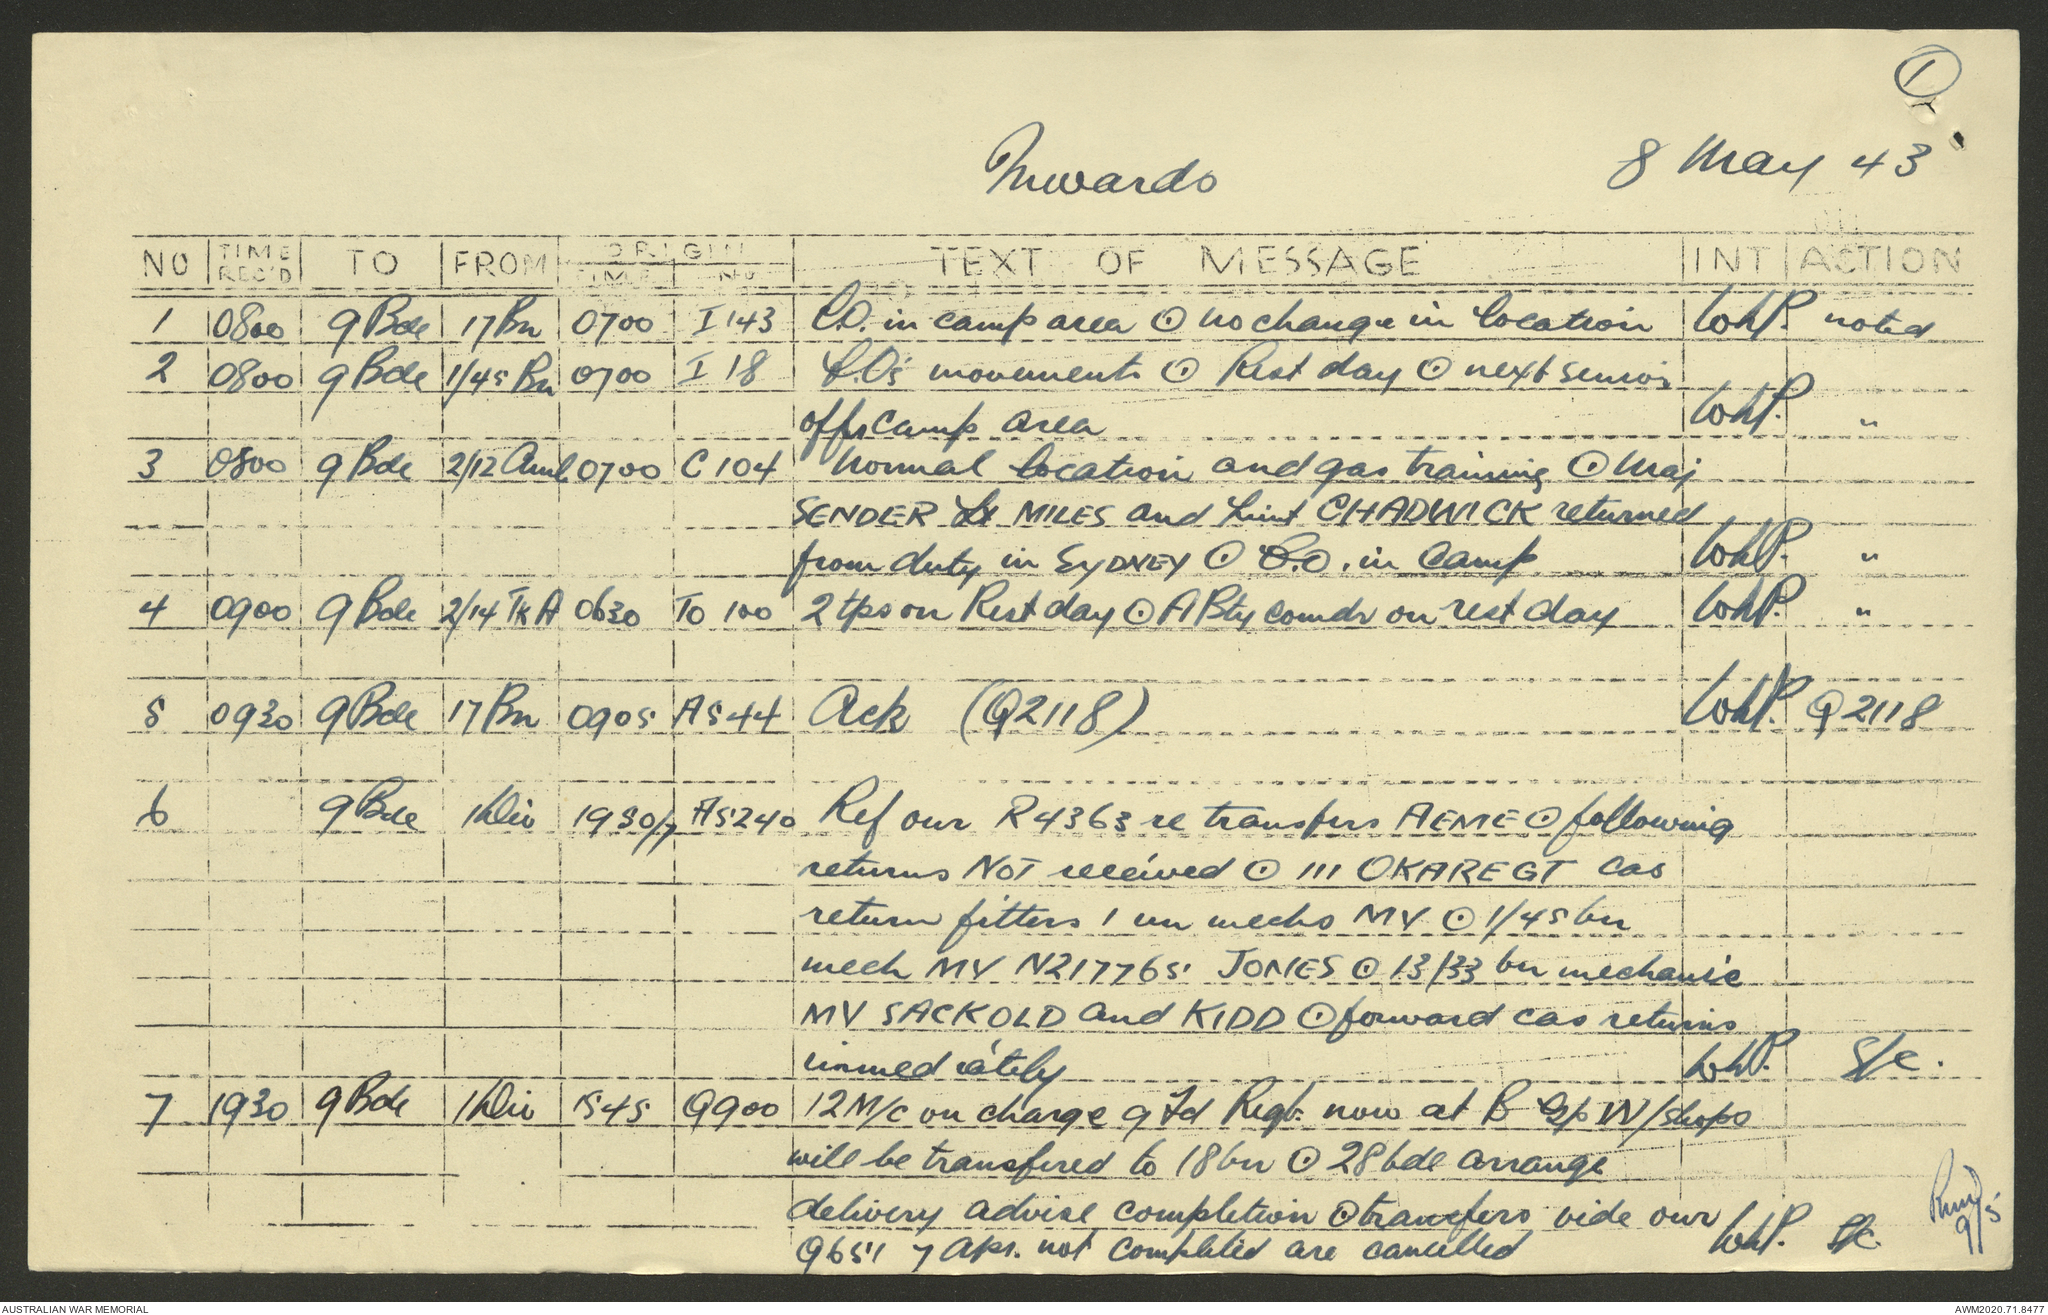 1
Inwards
8 May 43
NO TIME REC'D TO FROM ORIGIN TIME NO TEXT OF MESSAGE INT ACTION
1 0800 9 Bde 17 Bn 0700 I 143 C.O. in camp area ⊙ no change in location WhP. noted
2 0800 9 Bde 1/45 Bn 0700 I 18 C.O's movements ⊙ Rest day ⊙ next senior
offr camp area WhP. "
3 0800 9 Bde 2/12 Amb 0700 C 104 Normal location and gas training ⊙ Maj
SENDER Lt MILES and Lieut CHADWICK returned
from duty in SYDNEY ⊙ C.O. in Camp WhP. "
4 0900 9 Bde 2/14 Tk A 0630 To 100 2 tps on Rest day ⊙ A Bty comdr on rest day WhP. "
5 0930 9 Bde 17 Bn 0905 AS44 Ack (Q2118) WhP. Q2118
6 9 Bde 1 Div 1930/7 AS240 Ref our R4363 re transfers AEME ⊙ following
returns NOT received ⊙ 111 OKAREGT cas
return fitters 1 un mechs MV ⊙ 1/45 bn
mech MV N217765 JONES ⊙ 13/33 bn mechanic
MV SACKOLD and KIDD ⊙ forward cas returns
immediately WhP. S/c.
7 1930 9 Bde 1 Div 1545 Q900 12 M/c on charge 9 Fd Regt. now at B Gp W/shops
will be transfered to 18 bn ⊙ 28 bde arrange
delivery advise completion ⊙ transfers vide our
Q651 7 Apr. not completed are cancelled WhP. S/c.
9/5
AUSTRALIAN WAR MEMORIAL
AWM2020.71.8477